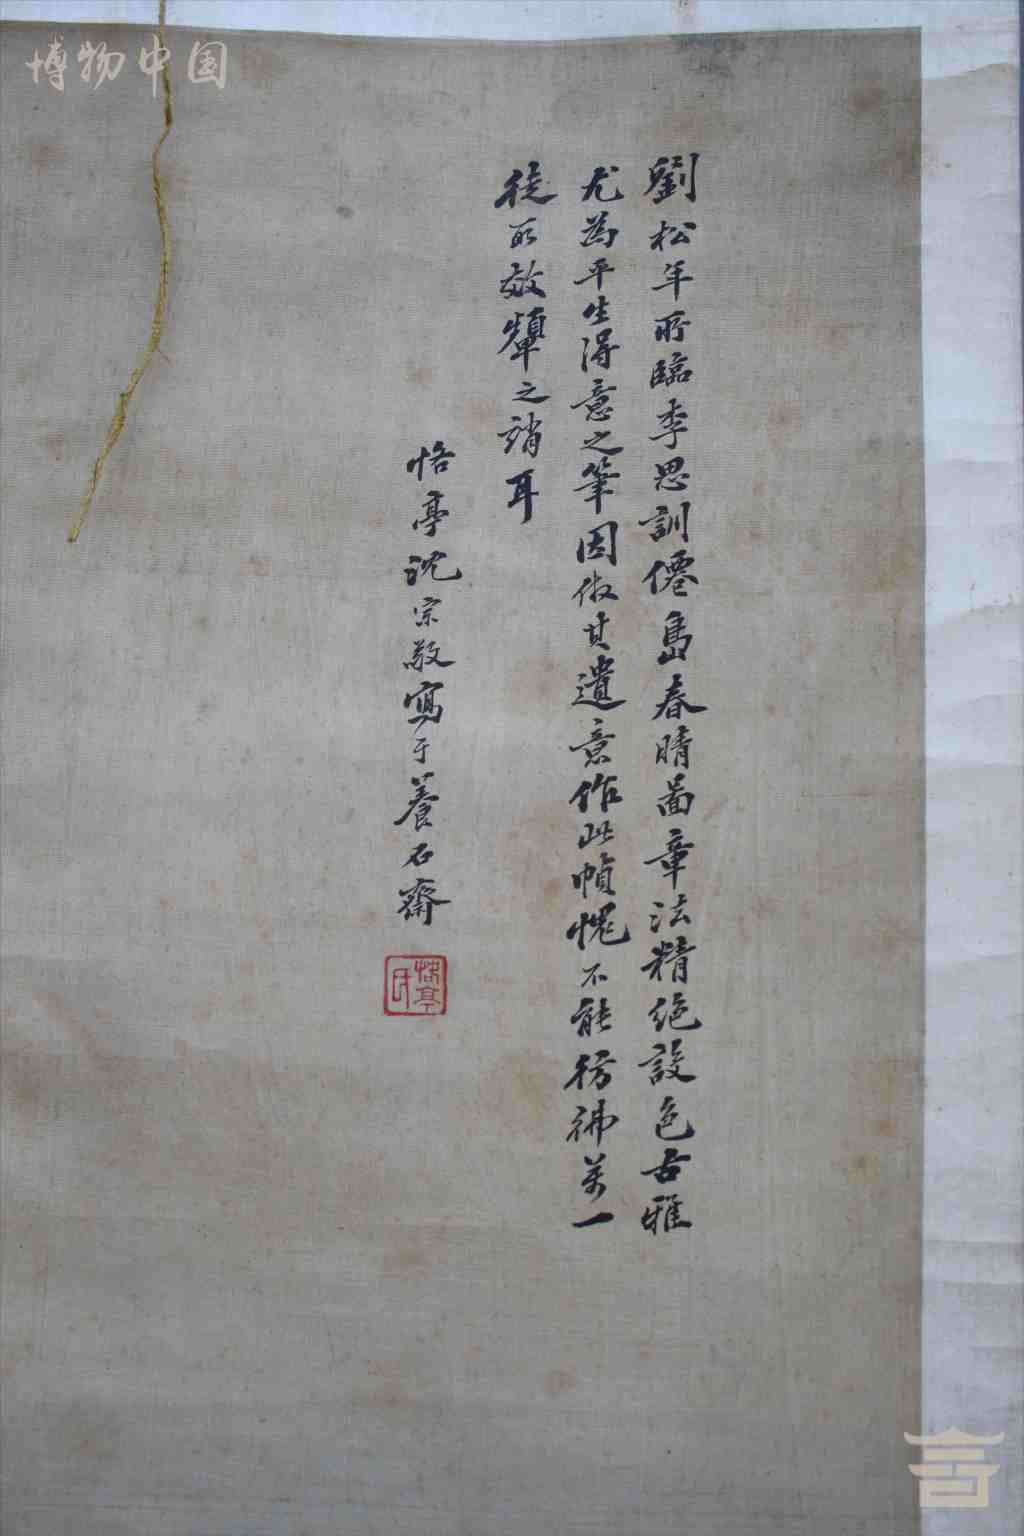 博物中国
劉松年所臨李思訓僊島春晴啚章法精絶設色古雅
尤為平生得意之筆因倣其遺意作此幀愧不能彷彿萬一
徒取效顰之誚耳
恪亭沈宗敬寫于養石齋